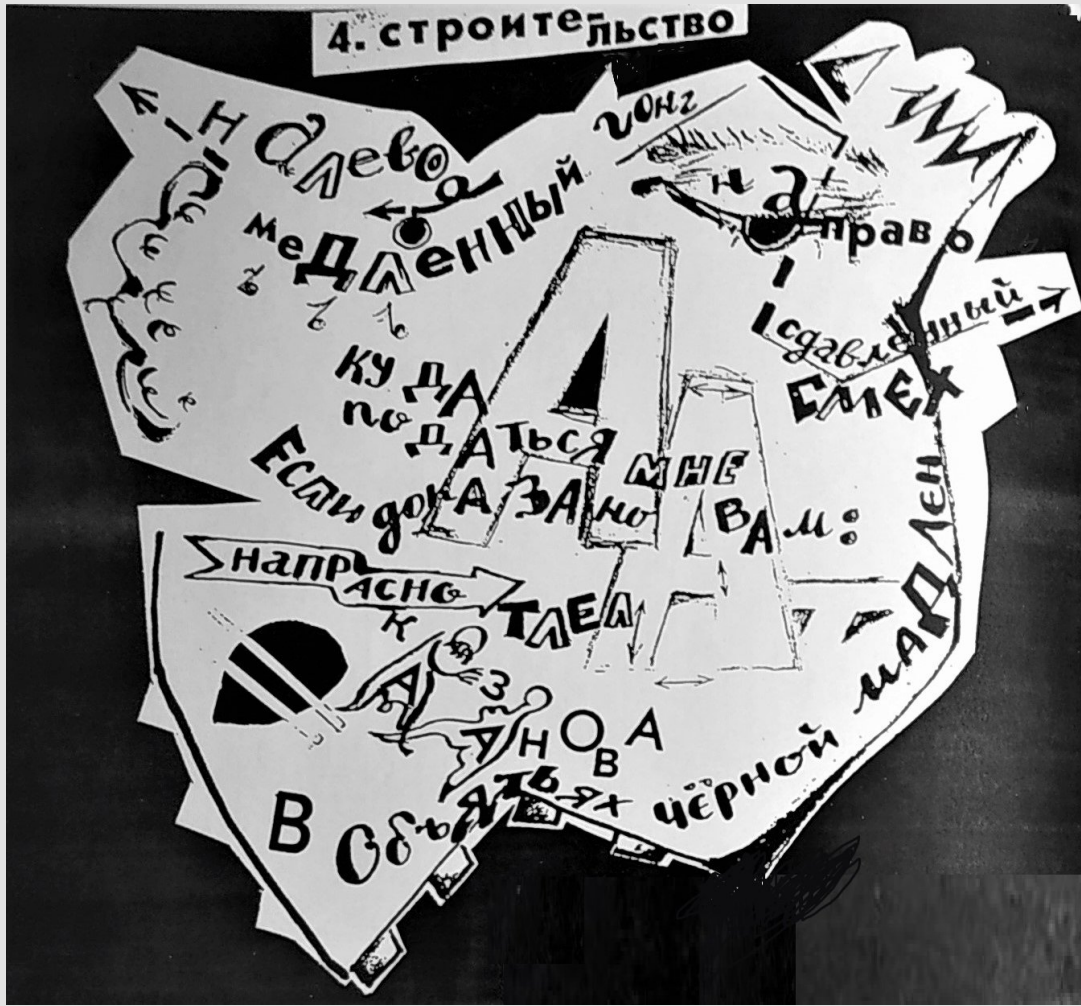 4. строитель-
ство
налево
медленный гонг
направо
сдавленный
смех
куда
податься мне
Если доказано вам:
напрасно
тлел
Казанова
в объятьях чёрной мадлен